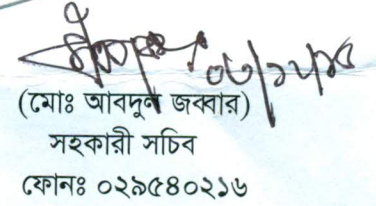 (মোঃ আবদুল জব্বার)
সহকারী সচিব
ফোনঃ ০২৯৫৪০২১৬